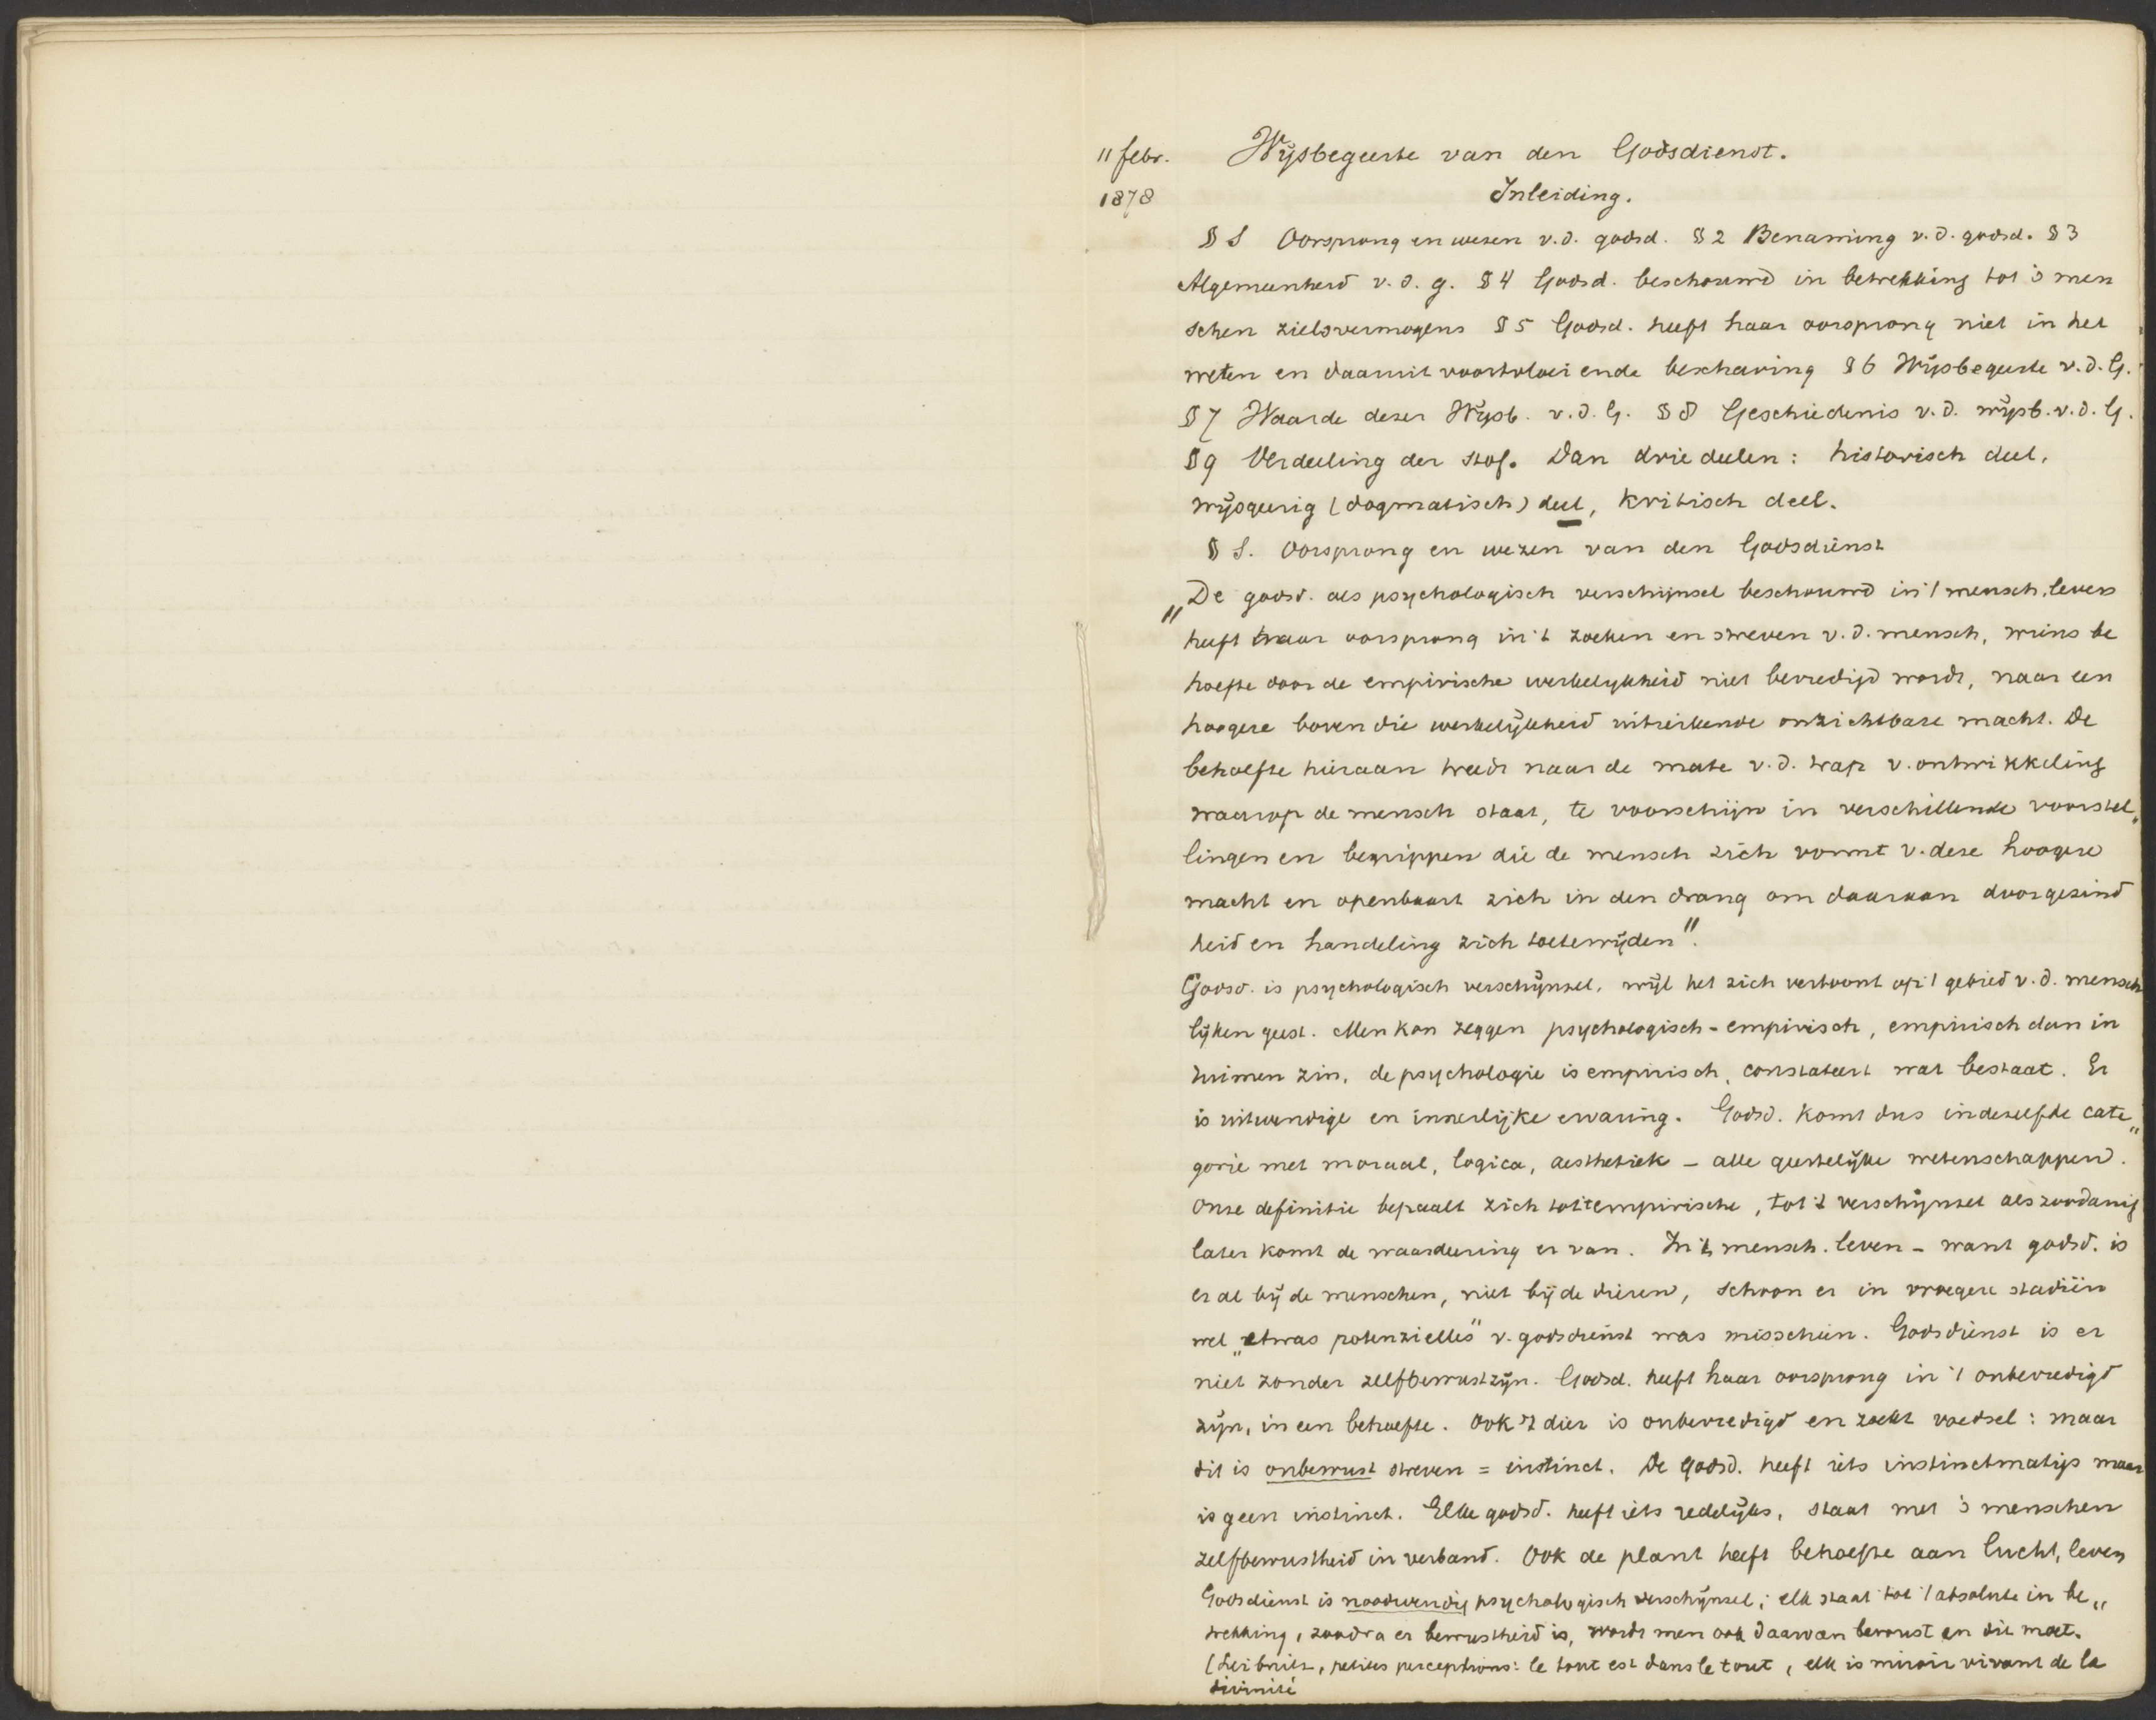 11 febr. Wijsbegeerte van den Godsdienst.
1878 Inleiding.
§ 1 Oorsprong en wezen v.d. godsd. § 2 Benaming v.d. godsd. § 3
Algemeenheid v.d.g. § 4 Godsd. beschouwd in betrekking tot 's men
schen zielsvermogens § 5 Godsd. heeft haar oorsprong niet in het
weten en daaruit voortvloeiende beschaving § 6 Wijsbegeerte v.d. G.
§ 7 Waarde dezer Wijsb. v.d. G. § 8 Geschiedenis v.d. wijsb. v.d. G.
§ 9 Verdeeling der stof. Dan drie deelen: historisch deel,
wijsgeerig (dogmatisch) deel, kritisch deel.
§ 1. Oorsprong en wezen van den Godsdienst
„De godsd. als psychologisch verschijnsel beschouwd in 't mensch. leven
heeft haar oorsprong in 't zoeken en streven v.d. mensch, wiens be
hoefte door de empirische werkelijkheid niet bevredigd wordt, naar een
hoogere boven die werkelijkheid uitreikende onzichtbare macht. De
behoefte hieraan treedt naar de mate v.d. trap v. ontwikkeling
waarop de mensch staat, te voorschijn in verschillende voorstel„
lingen en begrippen die de mensch zich vormt v. deze hoogere
macht en openbaart zich in den drang om daaraan door gezind
heid en handeling zich toetewijden".
Godsd. is psychologisch verschijnsel, wijl het zich vertoont op 't gebied v.d. mensch
lijken geest. Men kan zeggen psychologisch-empirisch, empirisch dan in
ruimen zin, de psychologie is empirisch, constateert wat bestaat. Er
is uitwendige en innerlijke ervaring. Godsd. komt dus in dezelfde cate„
gorie met moraal, logica, aesthetiek – alle geestelijke wetenschappen.
Onze definitie bepaalt zich tot 't empirische, tot 't verschijnsel als zoodanig
later komt de waardeering er van. In 't mensch. leven – want godsd. is
er al bij de menschen, niet bij de dieren, schoon er in vroegere stadiën
wel „etwas potenzielles" v. godsdienst was misschien. Godsdienst is er
niet zonder zelfbewustzijn. Godsd. heeft haar oorsprong in 't onbevredigd
zijn, in een behoefte. Ook 't dier is onbevredigd en zoekt voedsel: maar
dit is onbewust streven = instinct. De godsd. heeft iets instinctmatigs maar
is geen instinct. Elke godsd. heeft iets redelijks, staat met 's menschen
zelfbewustheid in verband. Ook de plant heeft behoefte aan lucht, leven
Godsdienst is noodwendig psychologisch verschijnsel; elk staat tot 't absolute in be„
trekking, zoodra er bewustheid is, wordt men ook daarvan bewust en dit moet.
(Leibnitz, petites perceptions: le tout est dans le tout, elk is miroir vivant de la
divinité